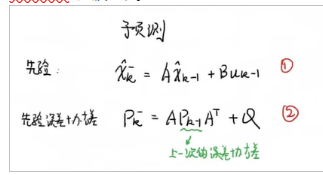 预测
先验: x̂ₖ⁻ = Ax̂ₖ₋₁ + Buₖ₋₁ ①
先验误差协方差 Pₖ⁻ = APₖ₋₁Aᵀ + Q ②
上一次的误差协方差